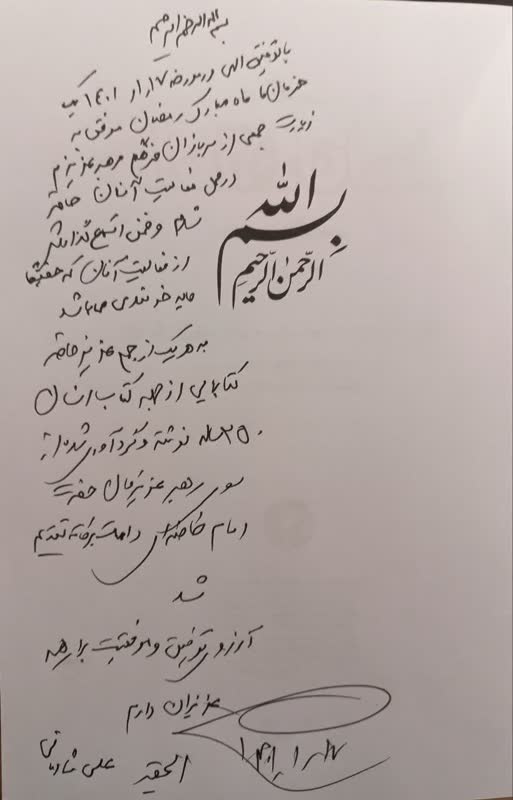 بسم الله الرحمن الرحیم
با توفیق الهی در مورخه ۱۷ر۱ر۱۴۰۱ یک
همزمان با ماه مبارک رمضان موفق به
زیارت جمعی از سربازان رهبر عزیزم
در محل فعالیت آنان حاضر
شدم و ضمن استماع گزارشی
از فعالیت آنان که حقیقتا
مایه خرسندی میباشد
به هر یک از جمع عزیز حاضر
کتابهایی از جمله کتاب انسان
۲۵۰ ساله نوشته و گردآوری شده از
سوی رهبر عزیزمان حضرت
امام خامنه‌ای دامت برکاته تقدیم
شد
آرزوی توفیق و موفقیت برای همه
عزیزان دارم
الحقیر علی شادمانی
۱۷ر۱ر۱۴۰۱
بسم الله
الرحمن الرحیم